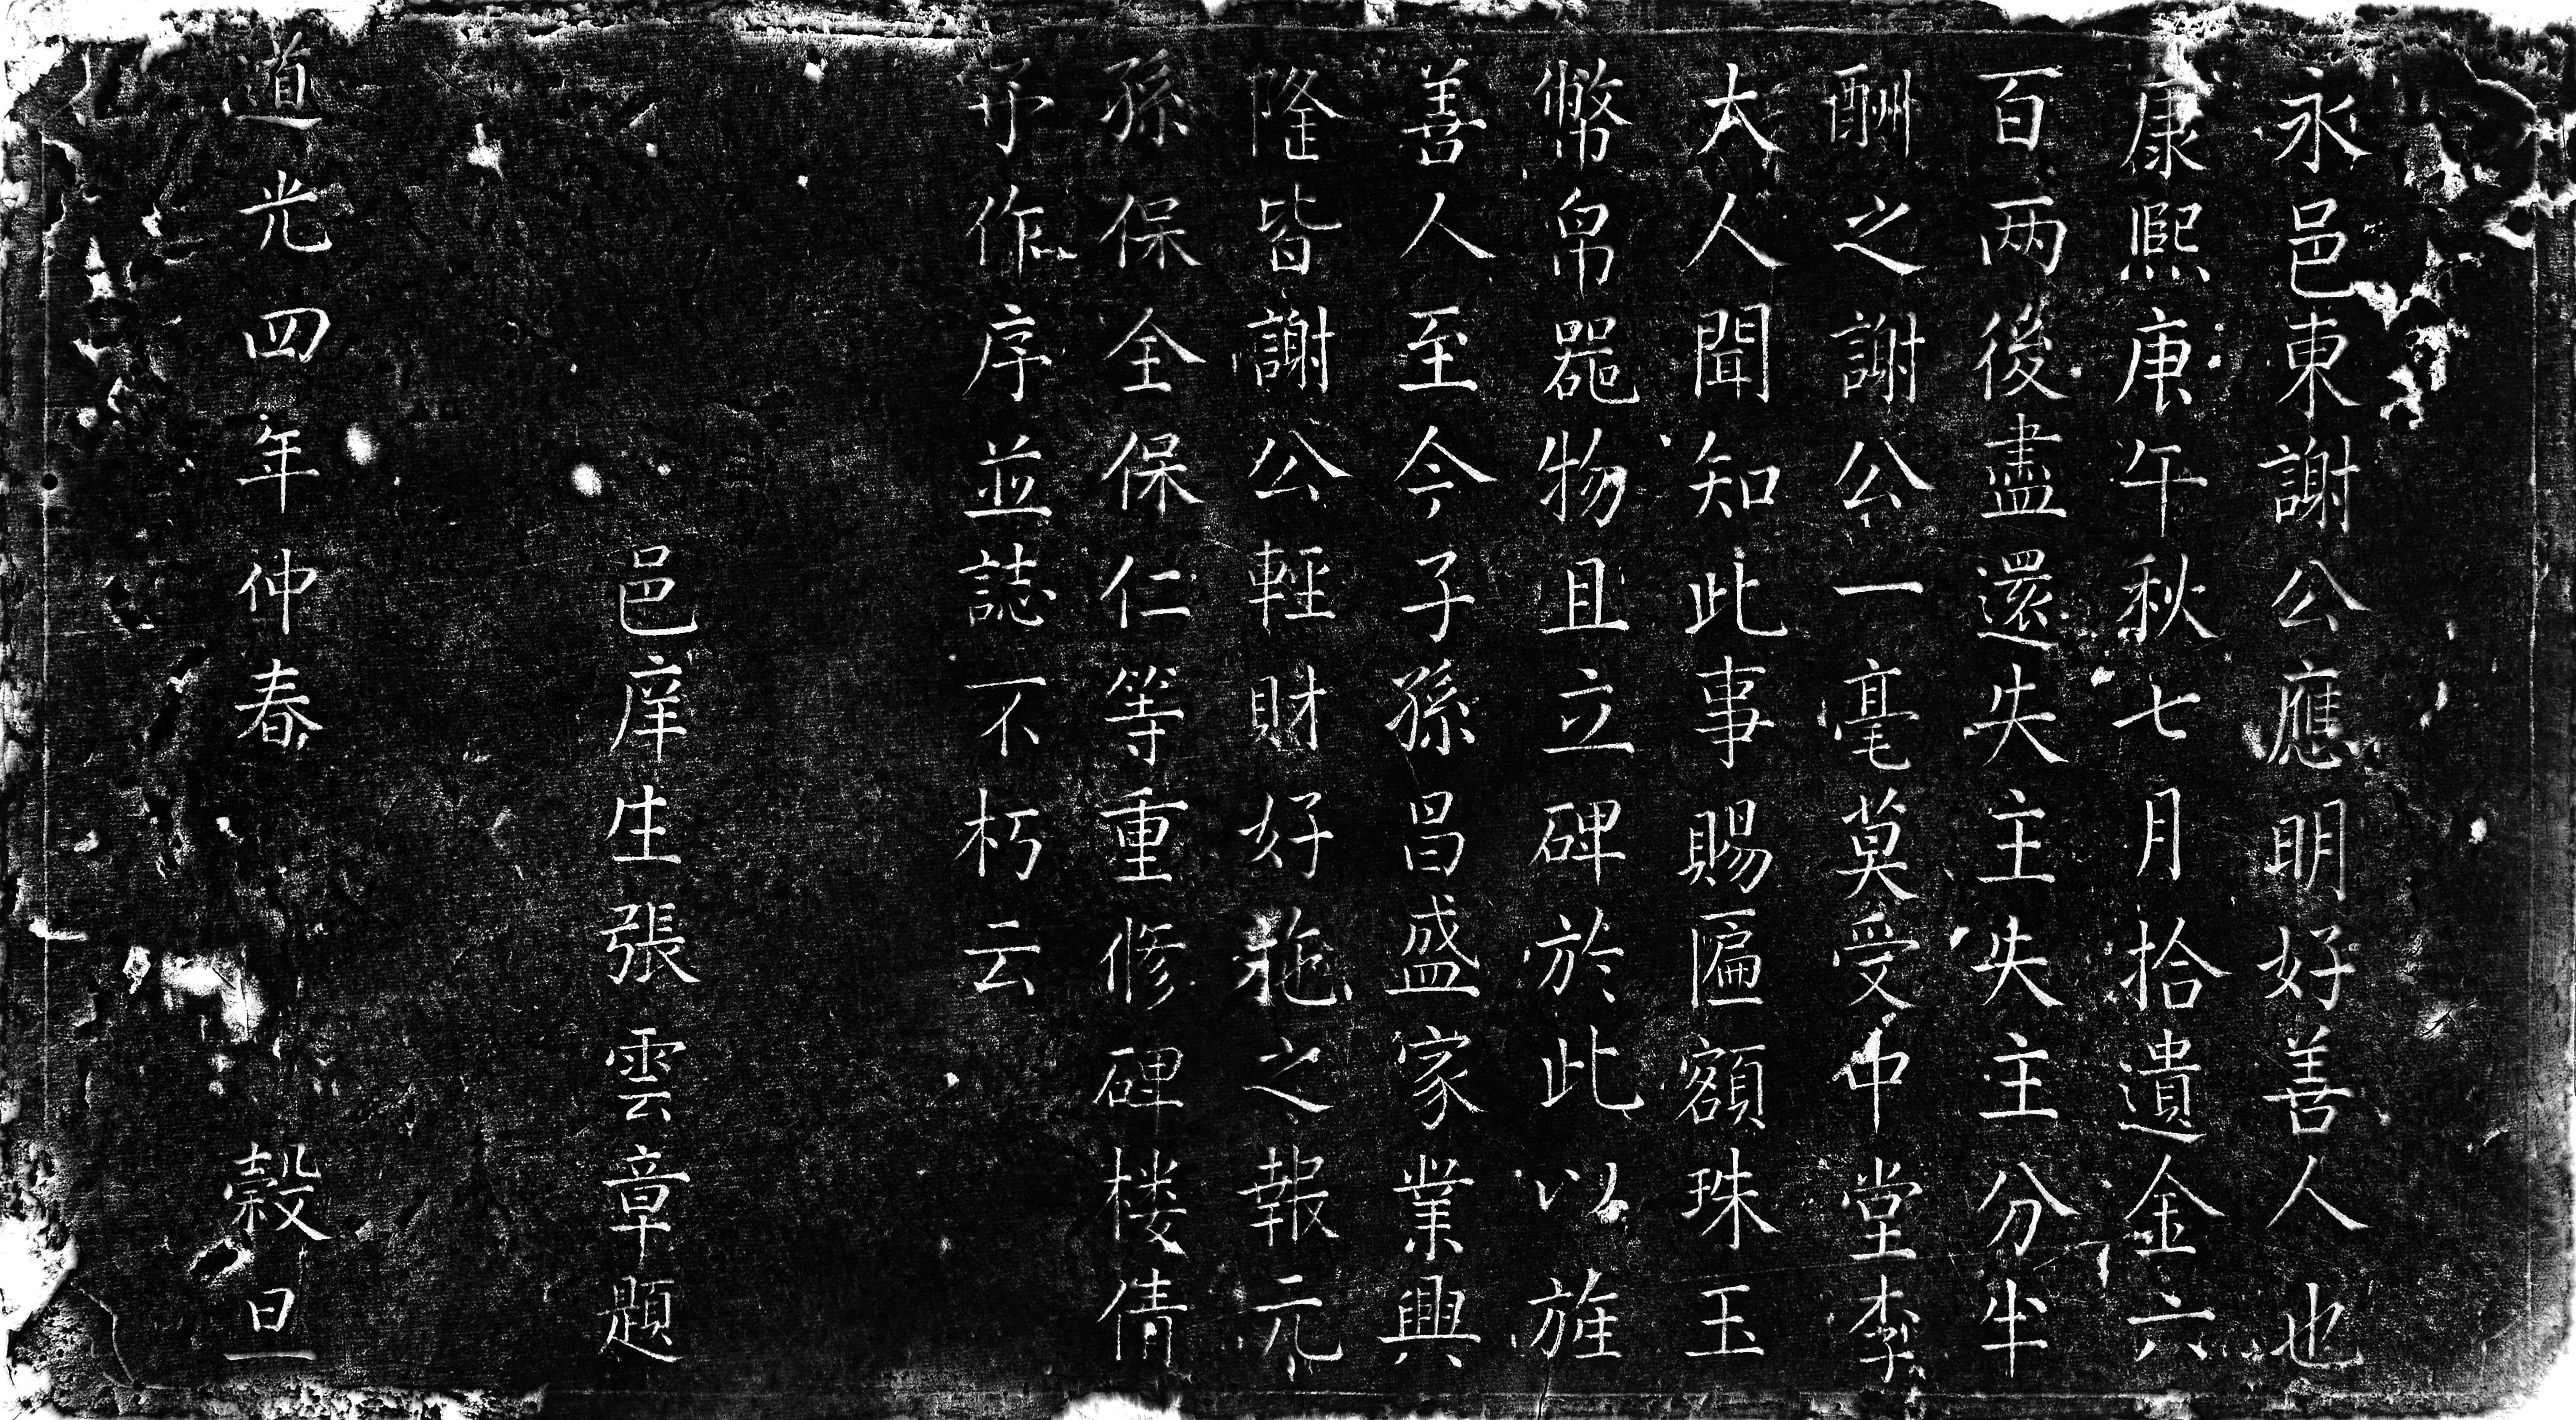 永邑東謝公應明好善人也
康熙庚午秋七月拾遺金六
百两後盡還失主失主分半
酬之謝公一毫莫受中堂李
太人聞知此事賜匾額珠玉
幣帛噐物且立碑於此以旌
善人至今子孫昌盛家業興
隆皆謝公輕財好施之報元
孫保全保仁等重修碑楼倩
予作序並誌不朽云
邑庠生張雲章題
道光四年仲春 穀旦